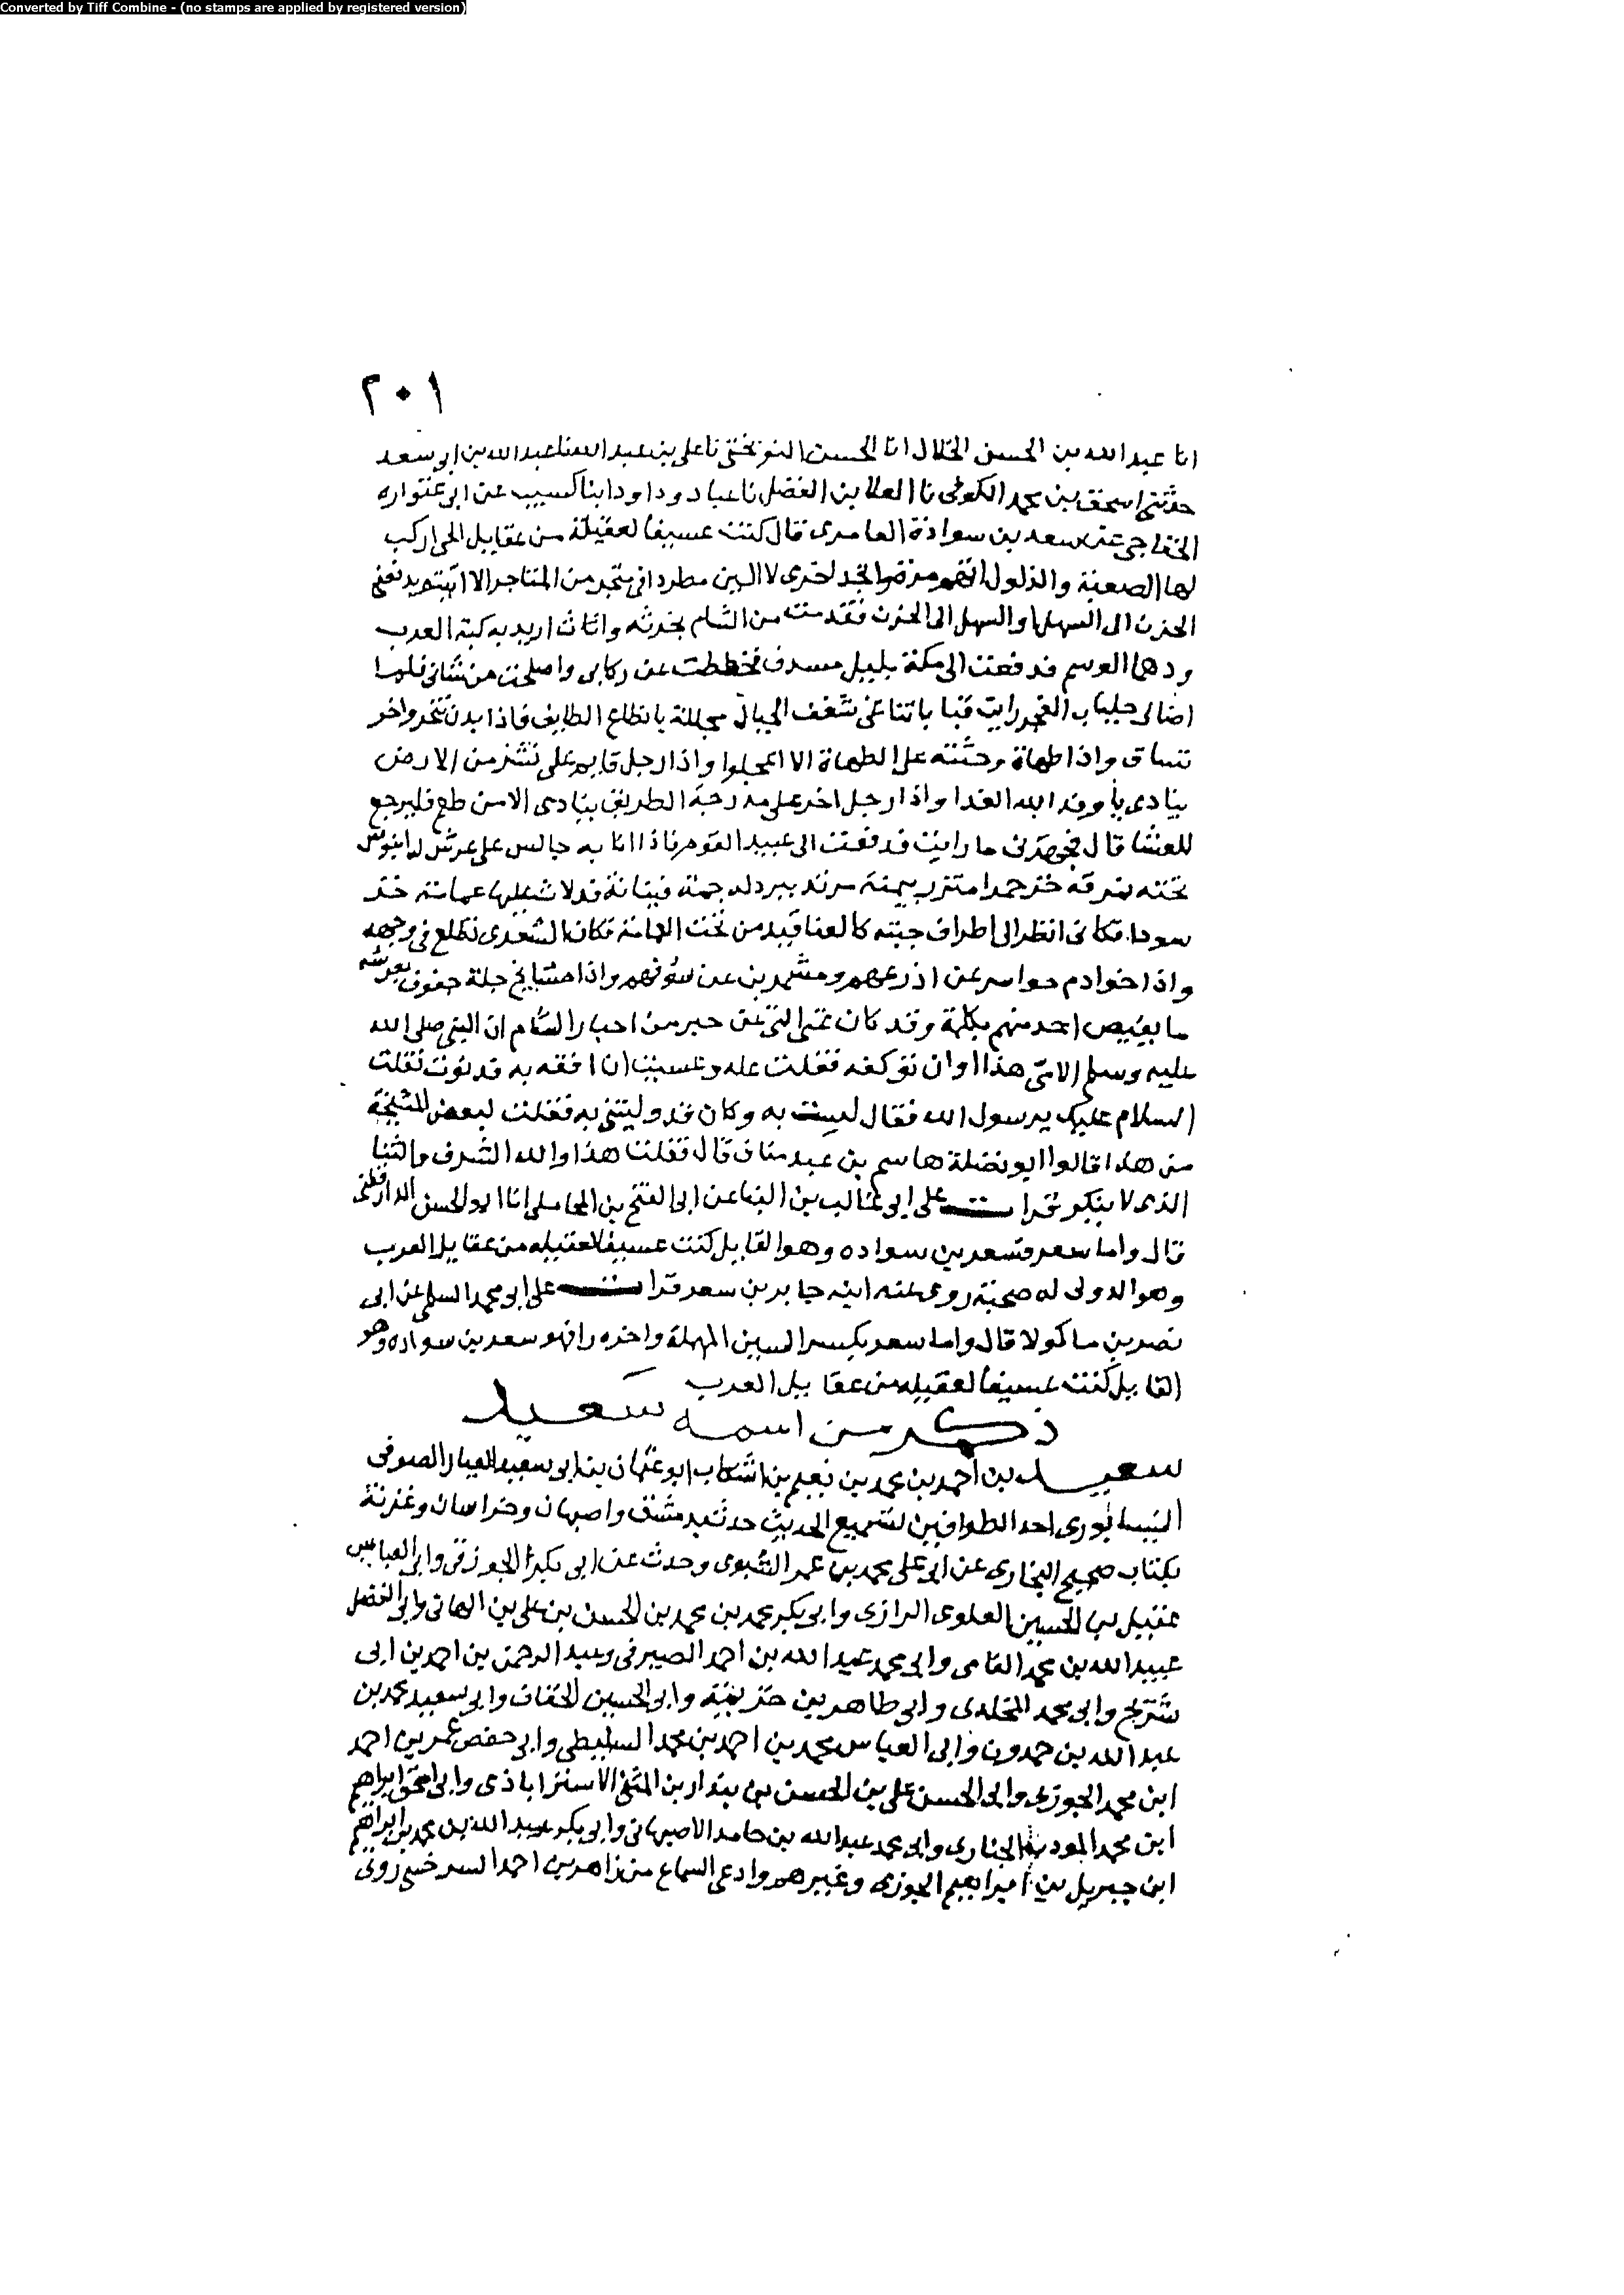 Converted by Tiff Combine - (no stamps are applied by registered version)
٢٠١
انا عبد الله بن الحسن الخلال انا الحسن النوبختي نا علي بن عبد الله نا عبد الله بن ابي سعد
حدثني اسحق بن محمد الكوفي نا العلا بن الفضل نا عباد وداود ابنا كسيب عن ابي عتواره
الخفاجي عن سعد بن سوادة العامري قال كنت عسيفا لعقيلة من عقايل الحي اركب
لها الصعبة والذلول لا اليق مطردا في متجر من المتاجر الا اتيته
الحزن الى السهل والسهل الى الحزن فقدمت من الشام بخرثه واثاث اريد به كبة العرب
ودهما الموسم فدفعت الى مكة بليل مسدف فحططت عن ركابي واصلحت من شاني فلما
اضا لي جلباب الفجر رايت قبابا تناغي شغف الجبال مجللة بانطاع الطايف فاذا بدن تنحر واخر
تساق واذا طهاة وحثثه على الطهاة الا اعجلوا واذا رجل قايم على نشز من الارض
ينادي يا وفد الله الغدا واذا رجل اخر على مدرجة الطريق ينادي الا من طعم فليرجع
للعشا قال فجهرني ما رايت فدفعت الى عميد القوم فاذا انا به جالس على عرش له ابنوس
تحته نمرقة خز حمرا متزر بيمنة مرتد ببرد له جمة فينانة قد لاث عليها عمامة خز
سودا فكاني انظر الى اطراف جمته كالعناقيد من تحت العمامة فكان الشعرى تطلع في وجهه
واذا خوادم حواسر عن اذرعهم ومشمرين عن سوقهم واذا مشايخ جلة حفوف بعرشه
ما يفيص احد منهم بكلمة وقد كان نمى الي عن حبر من احبار الشام ان النبي صلى الله
عليه وسلم الامي هذا اوان توكفه فقلت عله وعسيت ان افقه به قد نوت فقلت
السلام عليك يرسول الله فقال لست به وكان قد وليتني به فقلت لبعض المشيخة
من هذا قالوا ابو نضلة هاشم بن عبد مناف قال فقلت هذا والله الشرف والثنا
الذي لا ينكر قرات على ابي غالب بن البنا عن ابي الفتح بن المحاملي انا ابو الحسن الدارقطني
قال واما سعر فسعر بن سواده وهو القايل كنت عسيفا لعقيله من عقايل العرب
وهو الدولي له صحبة روى عنه ابنه جابر بن سعر قرات على ابي محمد السلمي عن ابي
نصر بن ماكولا قال واما سعر بكسر السين المهملة واخره را فهو سعر بن سواده وهو
القايل كنت عسيفا لعقيله من عقايل العرب
ذكر من اسمه سعيد
سعيد بن احمد بن محمد بن نعيم بن اشكاب ابو عثمان بن ابي سعيد العيار الصوفي
النيسابوري احد الطوافين لتسميع الحديث حدث بدمشق واصبهان وخراسان وغزنة
بكتاب صحيح البخاري عن ابي علي محمد بن عمر الشبوي وحدث عن ابي بكر الجوزقي وابي العباس
عقيل بن الحسين العلوي الرازي وابي بكر محمد بن محمد بن الحسن بن علي بن الهاني وابي الفضل
عبيد الله بن محمد الفامي وابي محمد عبد الله بن احمد الصيرفي وعبد الرحمن بن احمد بن ابي
شريح وابي محمد المخلدي وابي طاهر بن خزيمة وابي الحسين الخفاف وابي سعيد محمد بن
عبد الله بن حمدون وابي العباس محمد بن احمد بن محمد السليطي وابي حفص عمر بن احمد
ابن محمد الجوزي وابي الحسن علي بن الحسن بن بندار بن المثنى الاستراباذي وابي اسحق ابراهيم
ابن محمد المودب البخاري وابي محمد عبد الله بن حامد الاصبهاني وابي بكر عبيد الله بن محمد بن ابراهيم
ابن جبريل بن اميرا نعيم الجوزي وغيرهم وادعى السماع من زاهر بن احمد السرخسي روى